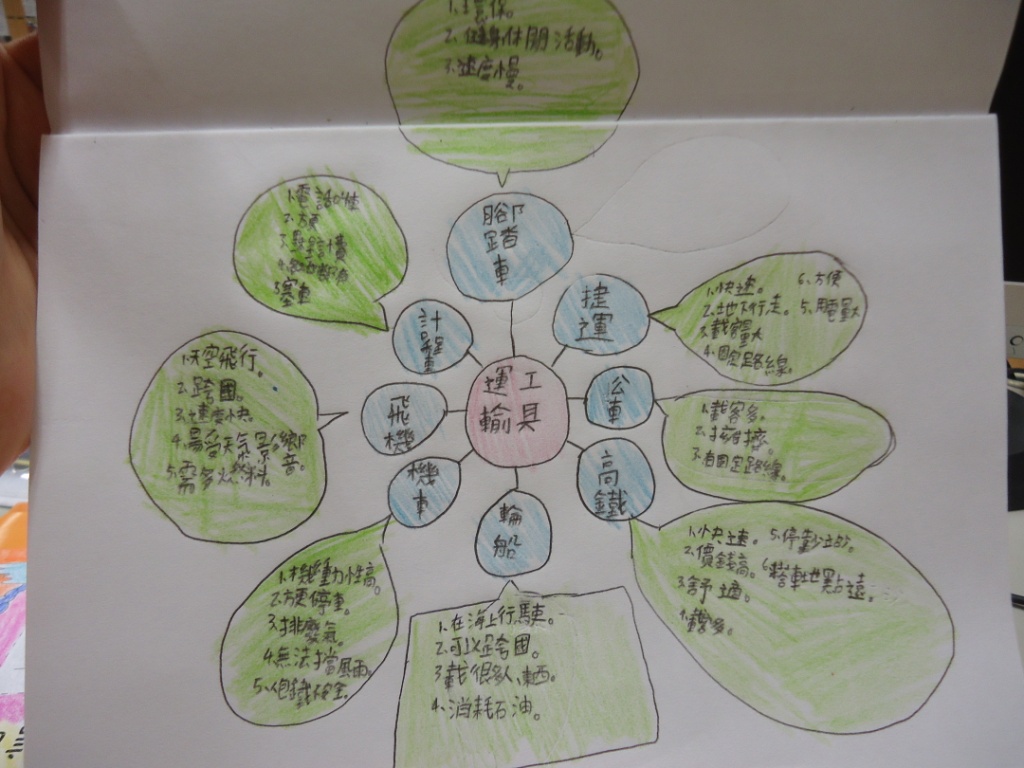 1.環保。
2.健身休閒活動。
3.速度慢。
腳踏車
2.方便
5.塞車
計程車
捷運
1.快速。
2.地下行走。
3.載客量大
4.固定路線。
6.方便
運輸工具
公車
1.載客多。
2.擁擠。
3.有固定路線。
飛機
1.天空飛行。
2.跨國。
3.速度快。
4.易受天氣影響。
5.需多燃料。
高鐵
1.快速。
2.價錢高。
3.舒適。
5.停靠站
6.搭車地點遠。
機車
1.機動性高。
2.方便停車。
3.排廢氣。
4.無法擋風雨。
輪船
1.在海上行駛。
2.可以跨國。
3.載很多人、東西。
4.消耗石油。